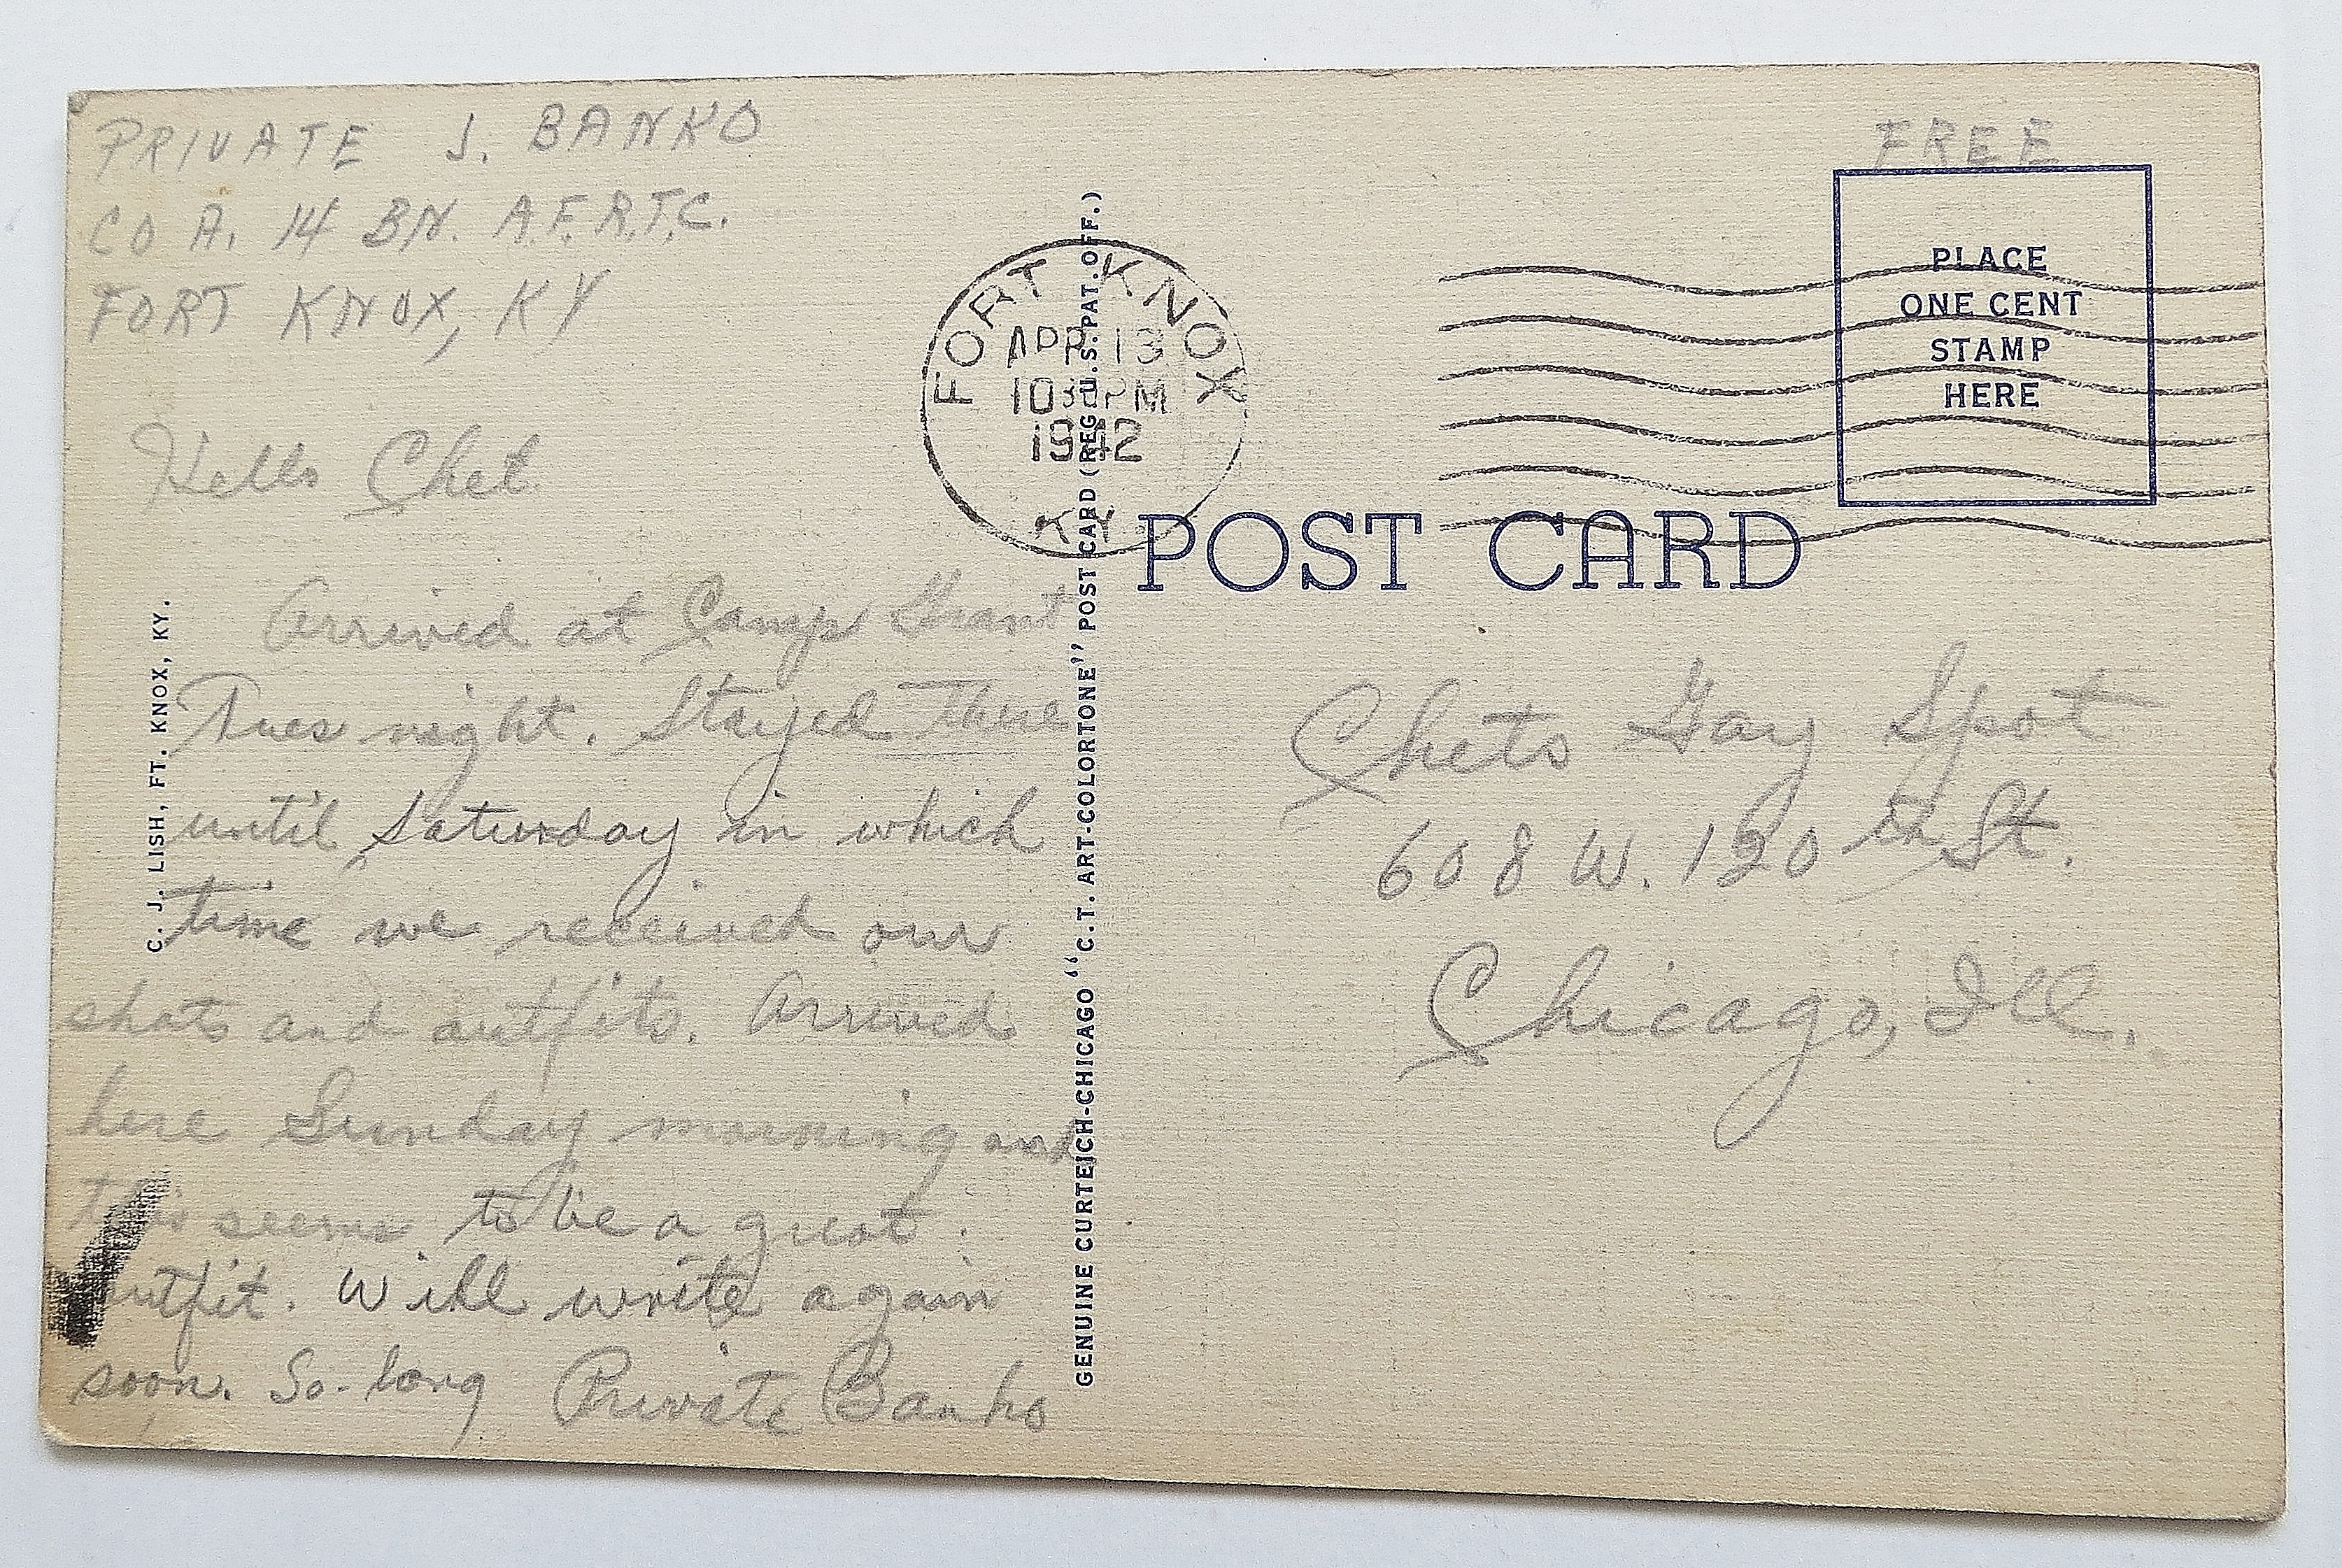 PRIVATE J. BANKO
CO A. 14 BN. A.F.R.T.C.
FORT KNOX, KY
Hello Chet
Arrived at Camp Grant
Tues night. Stayed there
until Saturday in which
time we received our
shots and outfits. Arrived
here Sunday morning and
this seems to be a great
outfit. Will write again
soon. So-long Private Banko
C. J. LISH, FT. KNOX, KY.
FORT KNOX
APR 13
1030PM
1942
KY
GENUINE CURTEICH-CHICAGO "C.T. ART-COLORTONE" POST CARD (REG. U.S. PAT. OFF.)
FREE
PLACE
ONE CENT
STAMP
HERE
POST CARD
Chets Gay Spot
608 W. 120th St.
Chicago, Ill.